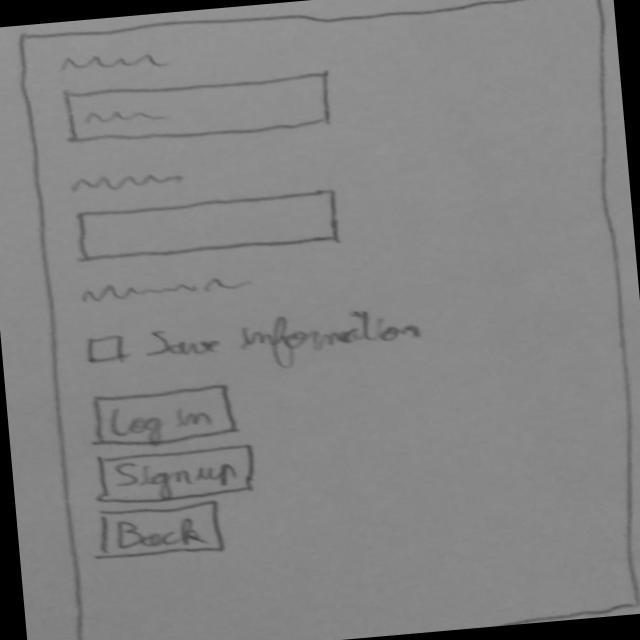 Save information
Log in
Signup
Back